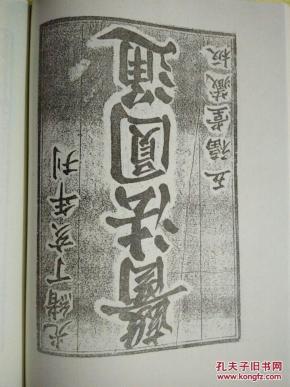 光緒丁亥年刊
醫法圓通
五福堂藏板
孔夫子旧书网